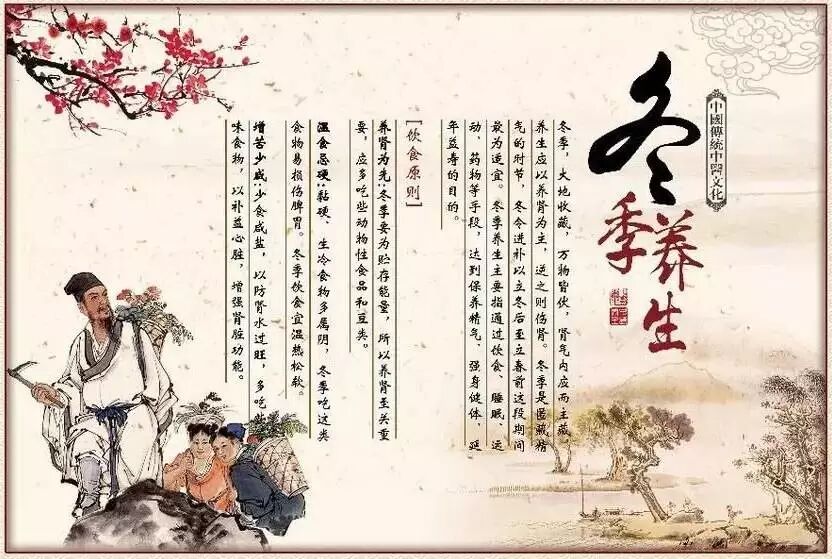 中國傳統中醫文化
冬季养生
冬季，大地收藏，万物皆伏，肾气内应而主藏，
养生应以养肾为主，逆之则伤肾。冬季是匿藏精
气的时节，冬令进补以立冬后至立春前这段期间
最为适宜。冬季养生主要指通过饮食、睡眠、运
动、药物等手段，达到保养精气、强身健体、延
年益寿的目的。
[饮食原则]
养肾为先:冬季要为贮存能量，所以养肾至关重
要，应多吃些动物性食品和豆类。
温食忌硬:黏硬、生冷食物多属阴，冬季吃这类
食物易损伤脾胃。冬季饮食宜温热松软。
增苦少咸:少食咸盐，以防肾水过旺，多吃
味食物，以补益心脏，增强肾脏功能。